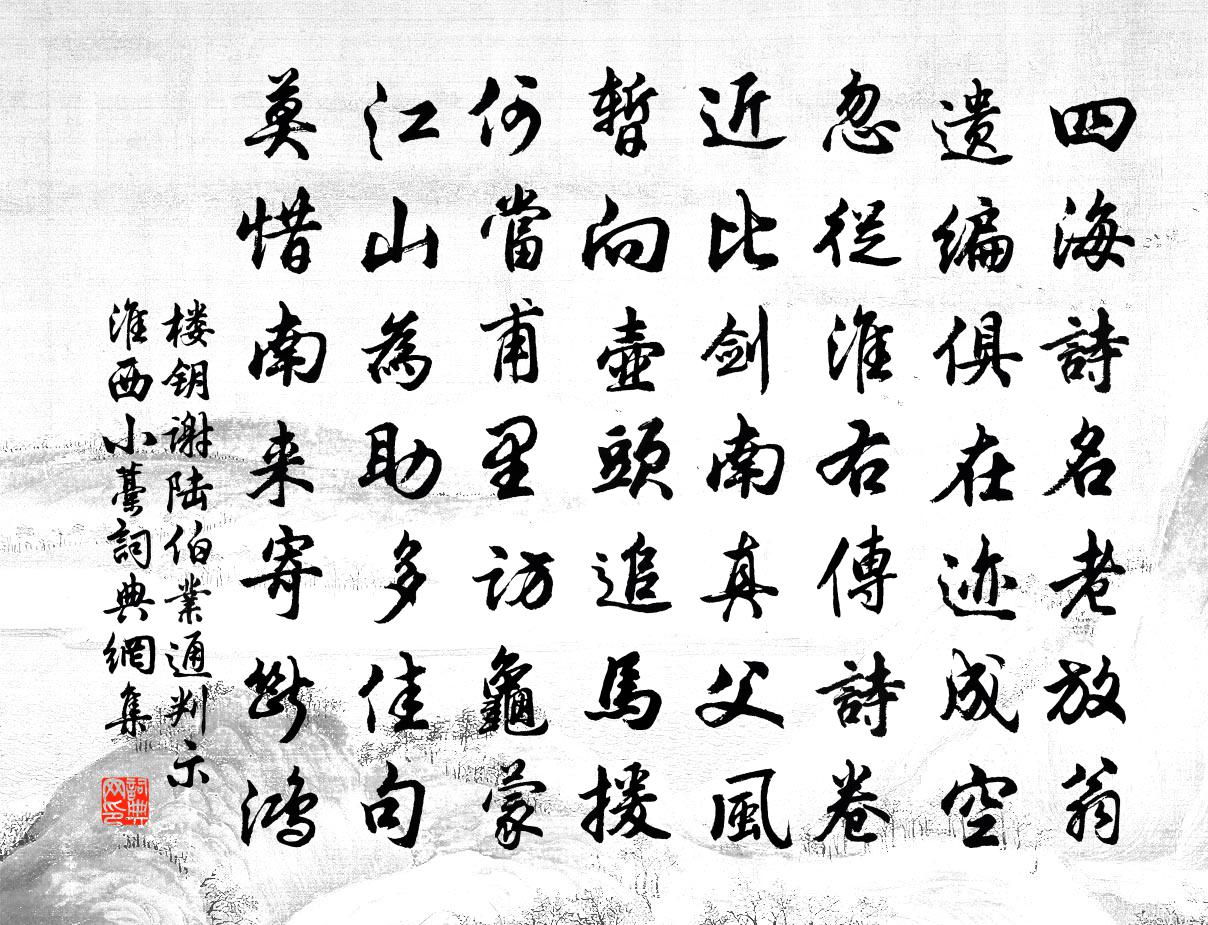 四海詩名老放翁
遗编俱在迹成空
忽從淮右傳詩卷
近比劍南真父風
暫向壺頭追馬援
何當甫里訪龜蒙
江山為助多佳句
莫惜南来寄断鸿
楼钥谢陆伯業通判示
淮西小藁詞典網集
詞典网印